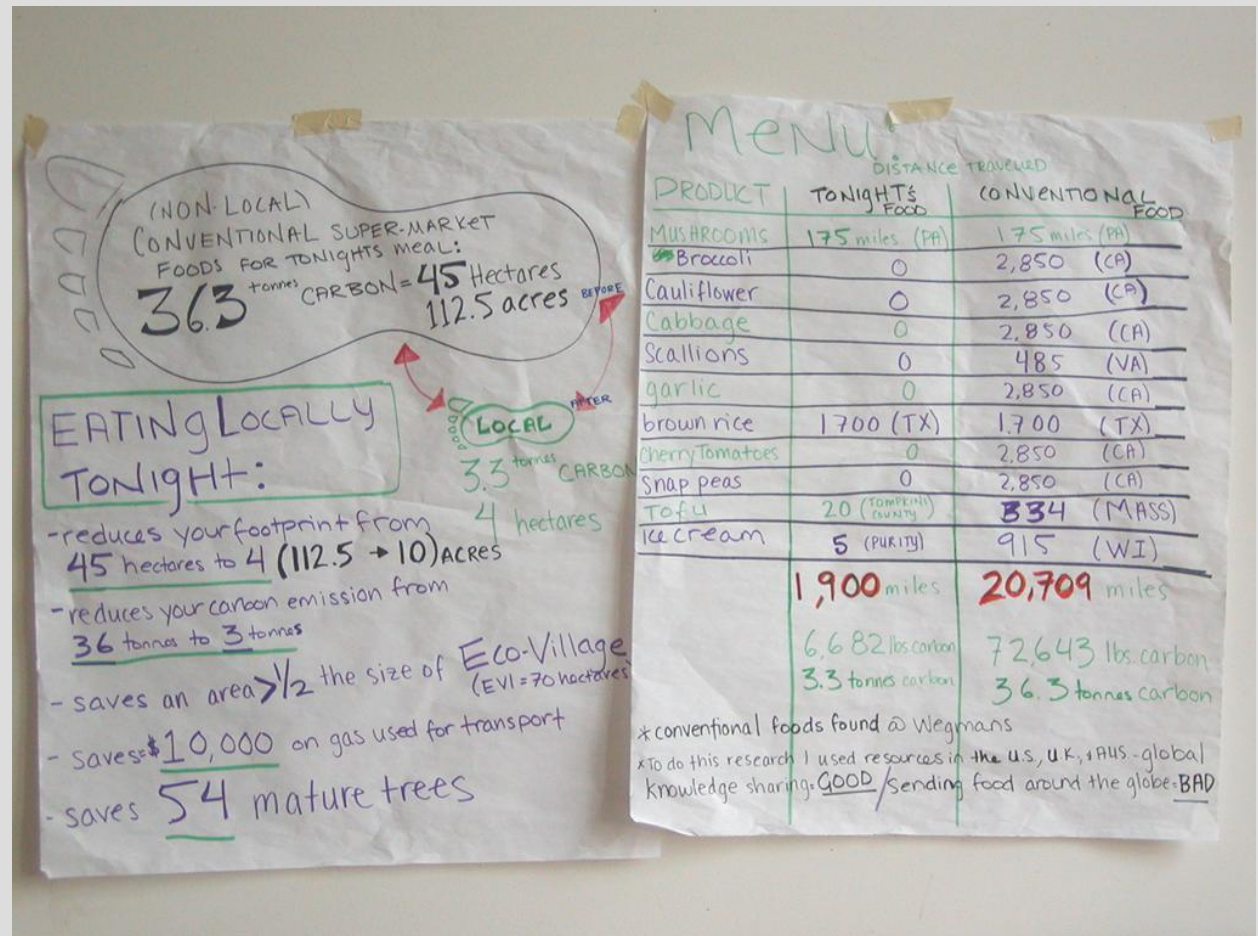 (NON-LOCAL)
CONVENTIONAL SUPER-MARKET
FOODS FOR TONIGHTS MEAL:
36.3 tonnes CARBON = 45 Hectares
112.5 acres
BEFORE
AFTER
LOCAL
3.3 tonnes CARBON
4 hectares
EATINg LOCALLY
TONIgHT:
-reduces your footprint from
45 hectares to 4 (112.5 → 10) ACRES
-reduces your carbon emission from
36 tonnes to 3 tonnes
- saves an area > 1/2 the size of Eco-Village
(EVI = 70 hectares)
- saves = $10,000 on gas used for transport
- saves 54 mature trees
MENU
DISTANCE TRAVELLED
PRODUCT TONIGHT'S FOOD CONVENTIONAL FOOD
MUSHROOMS 175 miles (PA) 175 miles (PA)
Broccoli 0 2,850 (CA)
Cauliflower 0 2,850 (CA)
Cabbage 0 2,850 (CA)
Scallions 0 485 (VA)
garlic 0 2,850 (CA)
brown rice 1700 (TX) 1,700 (TX)
Cherry Tomatoes 0 2,850 (CA)
Snap peas 0 2,850 (CA)
TOFU 20 (TOMPKINS COUNTY) 334 (MASS)
Ice cream 5 (PURITY) 915 (WI)
1,900 miles 20,709 miles
6,682 lbs.carbon 72,643 lbs.carbon
3.3 tonnes carbon 36.3 tonnes carbon
*conventional foods found @ Wegmans
*To do this research I used resources in the U.S, U.K, & AUS.-global
knowledge sharing=GOOD/sending food around the globe=BAD